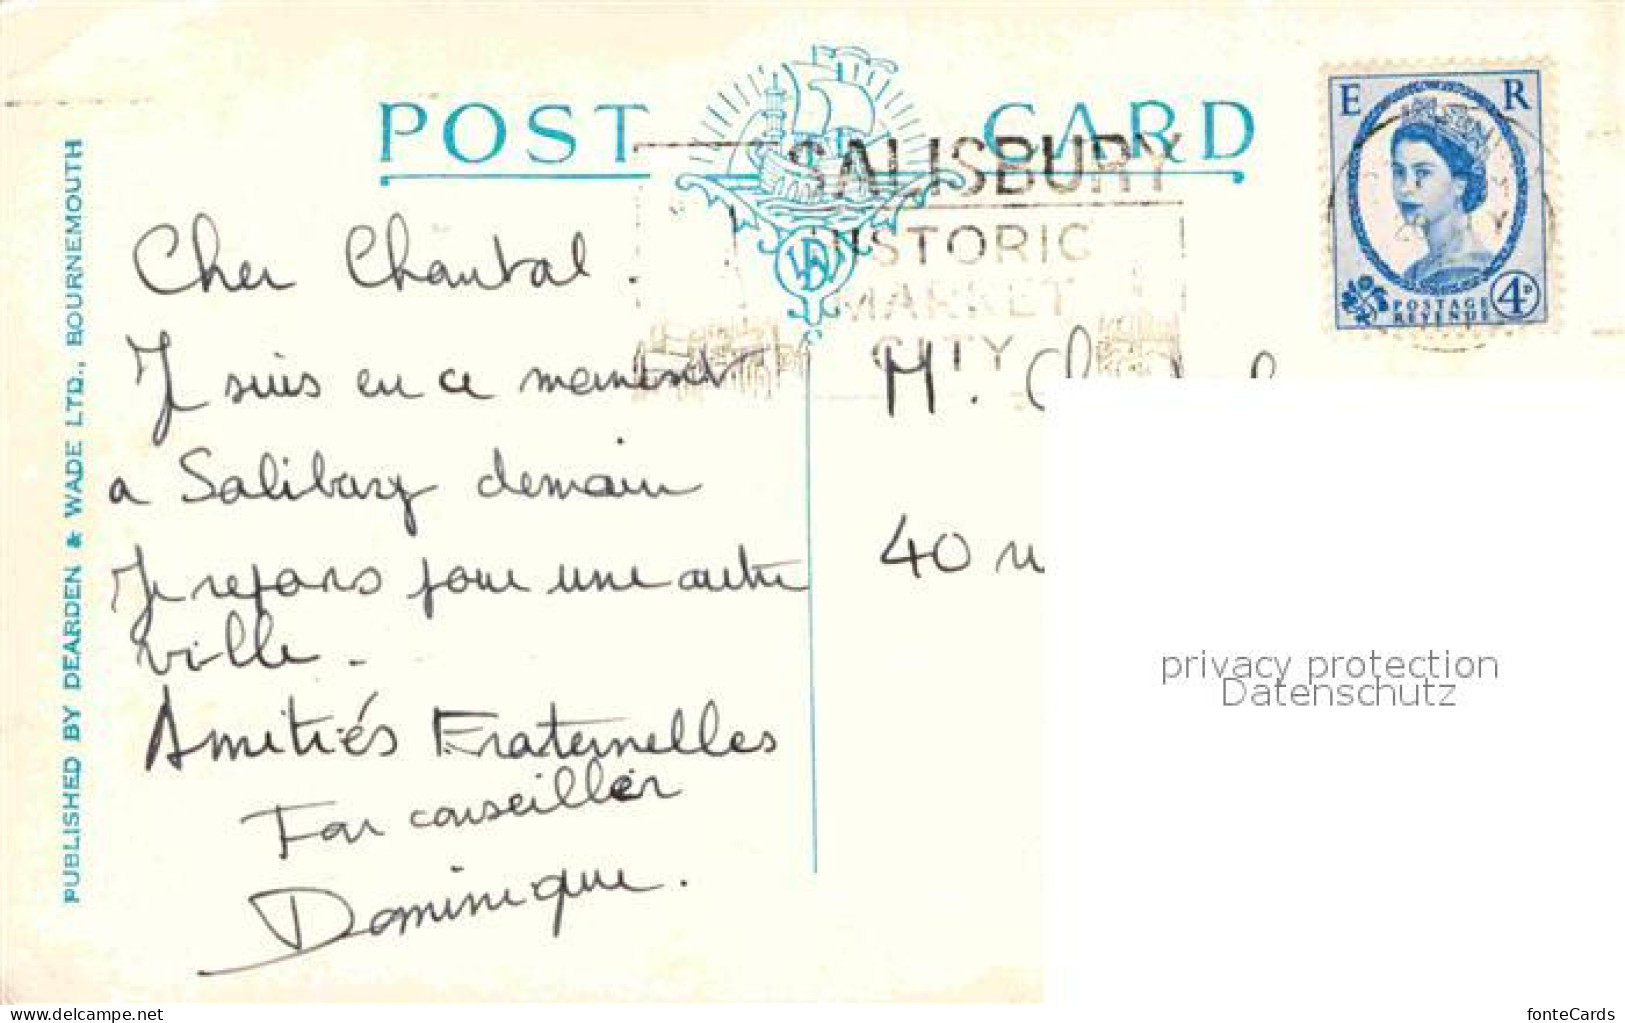 POST CARD
SALISBURY
HISTORIC
MARKET
CITY
E R
POSTAGE
REVENUE
4D
PUBLISHED BY DEARDEN & WADE LTD., BOURNEMOUTH
Cher Chantal.
Je suis en ce moment
a Salibury demain
Je repars pour une autre
ville.
Amitiés Fraternelles
Ton conseiller
Dominique.
M.
40
privacy protection
Datenschutz
www.delcampe.net
fonteCards